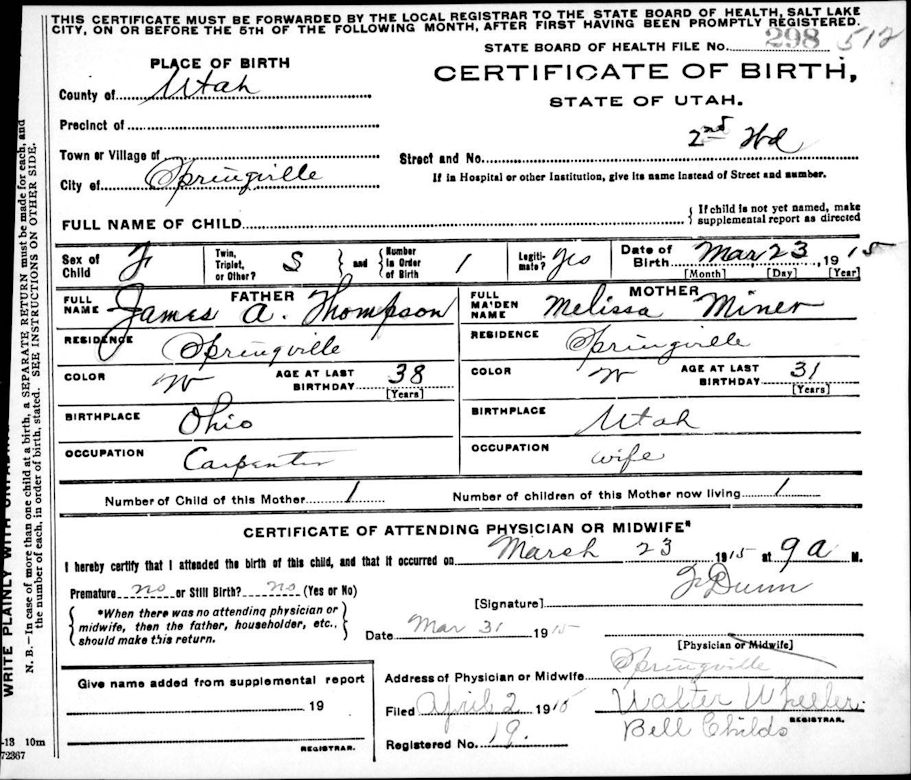 THIS CERTIFICATE MUST BE FORWARDED BY THE LOCAL REGISTRAR TO THE STATE BOARD OF HEALTH, SALT LAKE
CITY, ON OR BEFORE THE 5TH OF THE FOLLOWING MONTH, AFTER FIRST HAVING BEEN PROMPTLY REGISTERED.
STATE BOARD OF HEALTH FILE No. 298 512
PLACE OF BIRTH
CERTIFICATE OF BIRTH,
County of Utah
STATE OF UTAH.
Precinct of
Town or Village of
Street and No. 2nd Wd
City of Springville
If in Hospital or other Institution, give its name instead of Street and number.
FULL NAME OF CHILD
{ If child is not yet named, make
supplemental report as directed
Sex of Child F Twin, Triplet, or Other? S } and { Number in Order of Birth 1 Legiti-mate? Yes Date of Birth Mar 23, 1915
[Month] [Day] [Year]
FATHER
FULL NAME James A. Thompson
MOTHER
FULL MAIDEN NAME Melissa Miner
RESIDENCE Springville
RESIDENCE Springville
COLOR W AGE AT LAST BIRTHDAY 38 [Years]
COLOR W AGE AT LAST BIRTHDAY 31 [Years]
BIRTHPLACE Ohio
BIRTHPLACE Utah
OCCUPATION Carpenter
OCCUPATION wife
Number of Child of this Mother 1 Number of children of this Mother now living 1
CERTIFICATE OF ATTENDING PHYSICIAN OR MIDWIFE*
I hereby certify that I attended the birth of this child, and that it occurred on March 23 1915 at 9 a M.
Premature no or Still Birth? no (Yes or No)
[Signature] Dunn
{ *When there was no attending physician or
midwife, then the father, householder, etc.,
should make this return. }
Date Mar 31 1915
[Physician or Midwife]
Address of Physician or Midwife Springville
Give name added from supplemental report
19
REGISTRAR.
Filed April 2 1915 Walter Wheeler
REGISTRAR.
Registered No. 19. Bell Childs
WRITE PLAINLY WITH
N. B.—In case of more than one child at a birth, a SEPARATE RETURN must be made for each, and
the number of each, in order of birth, stated. SEE INSTRUCTIONS ON OTHER SIDE.
-13 10m
72367